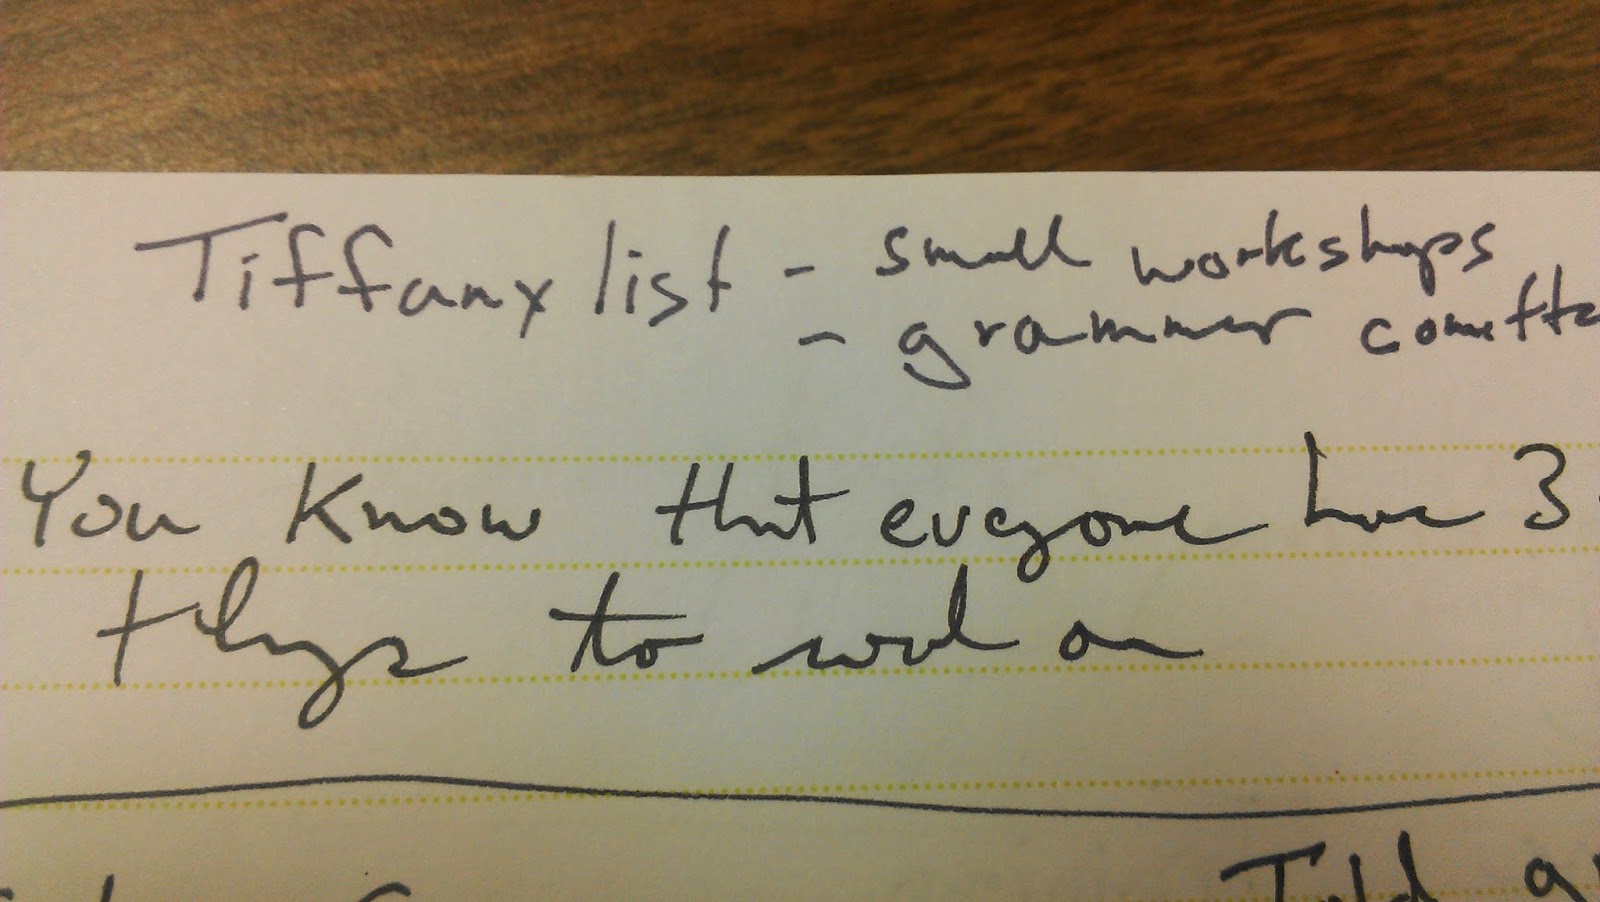 Tiffany list - small workshops
- grammer
You know that everyone have 3
things to work on
Told